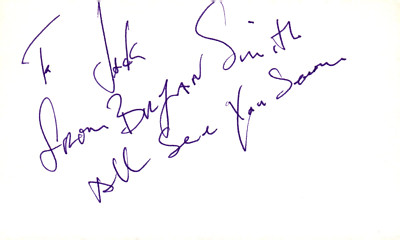 To Jack
From BRYAN Smith
All See You Soon